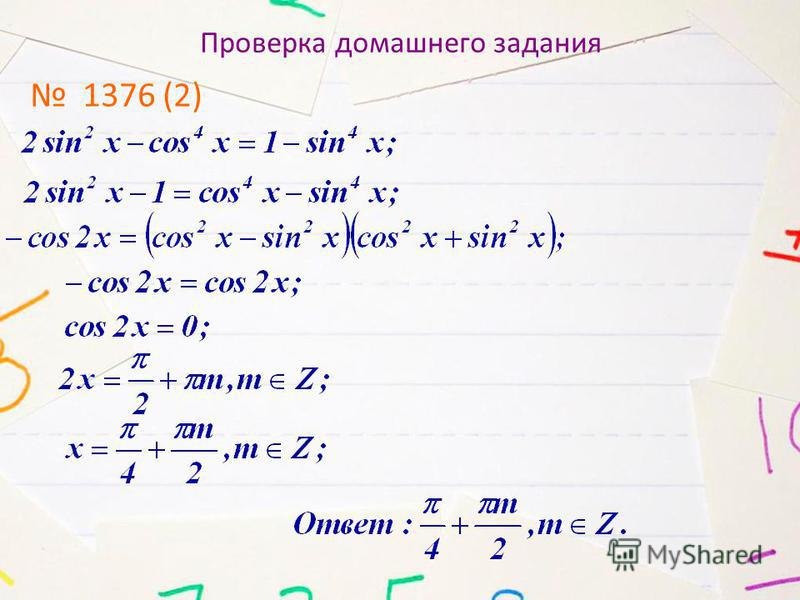 Проверка домашнего задания
№ 1376 (2)
2 sin² x − cos⁴ x = 1 − sin⁴ x;
2 sin² x − 1 = cos⁴ x − sin⁴ x;
− cos 2x = (cos² x − sin² x)(cos² x + sin² x);
− cos 2x = cos 2x;
cos 2x = 0;
2x = π/2 + πm, m ∈ Z;
x = π/4 + πm/2, m ∈ Z;
Ответ: π/4 + πm/2, m ∈ Z.
MyShared